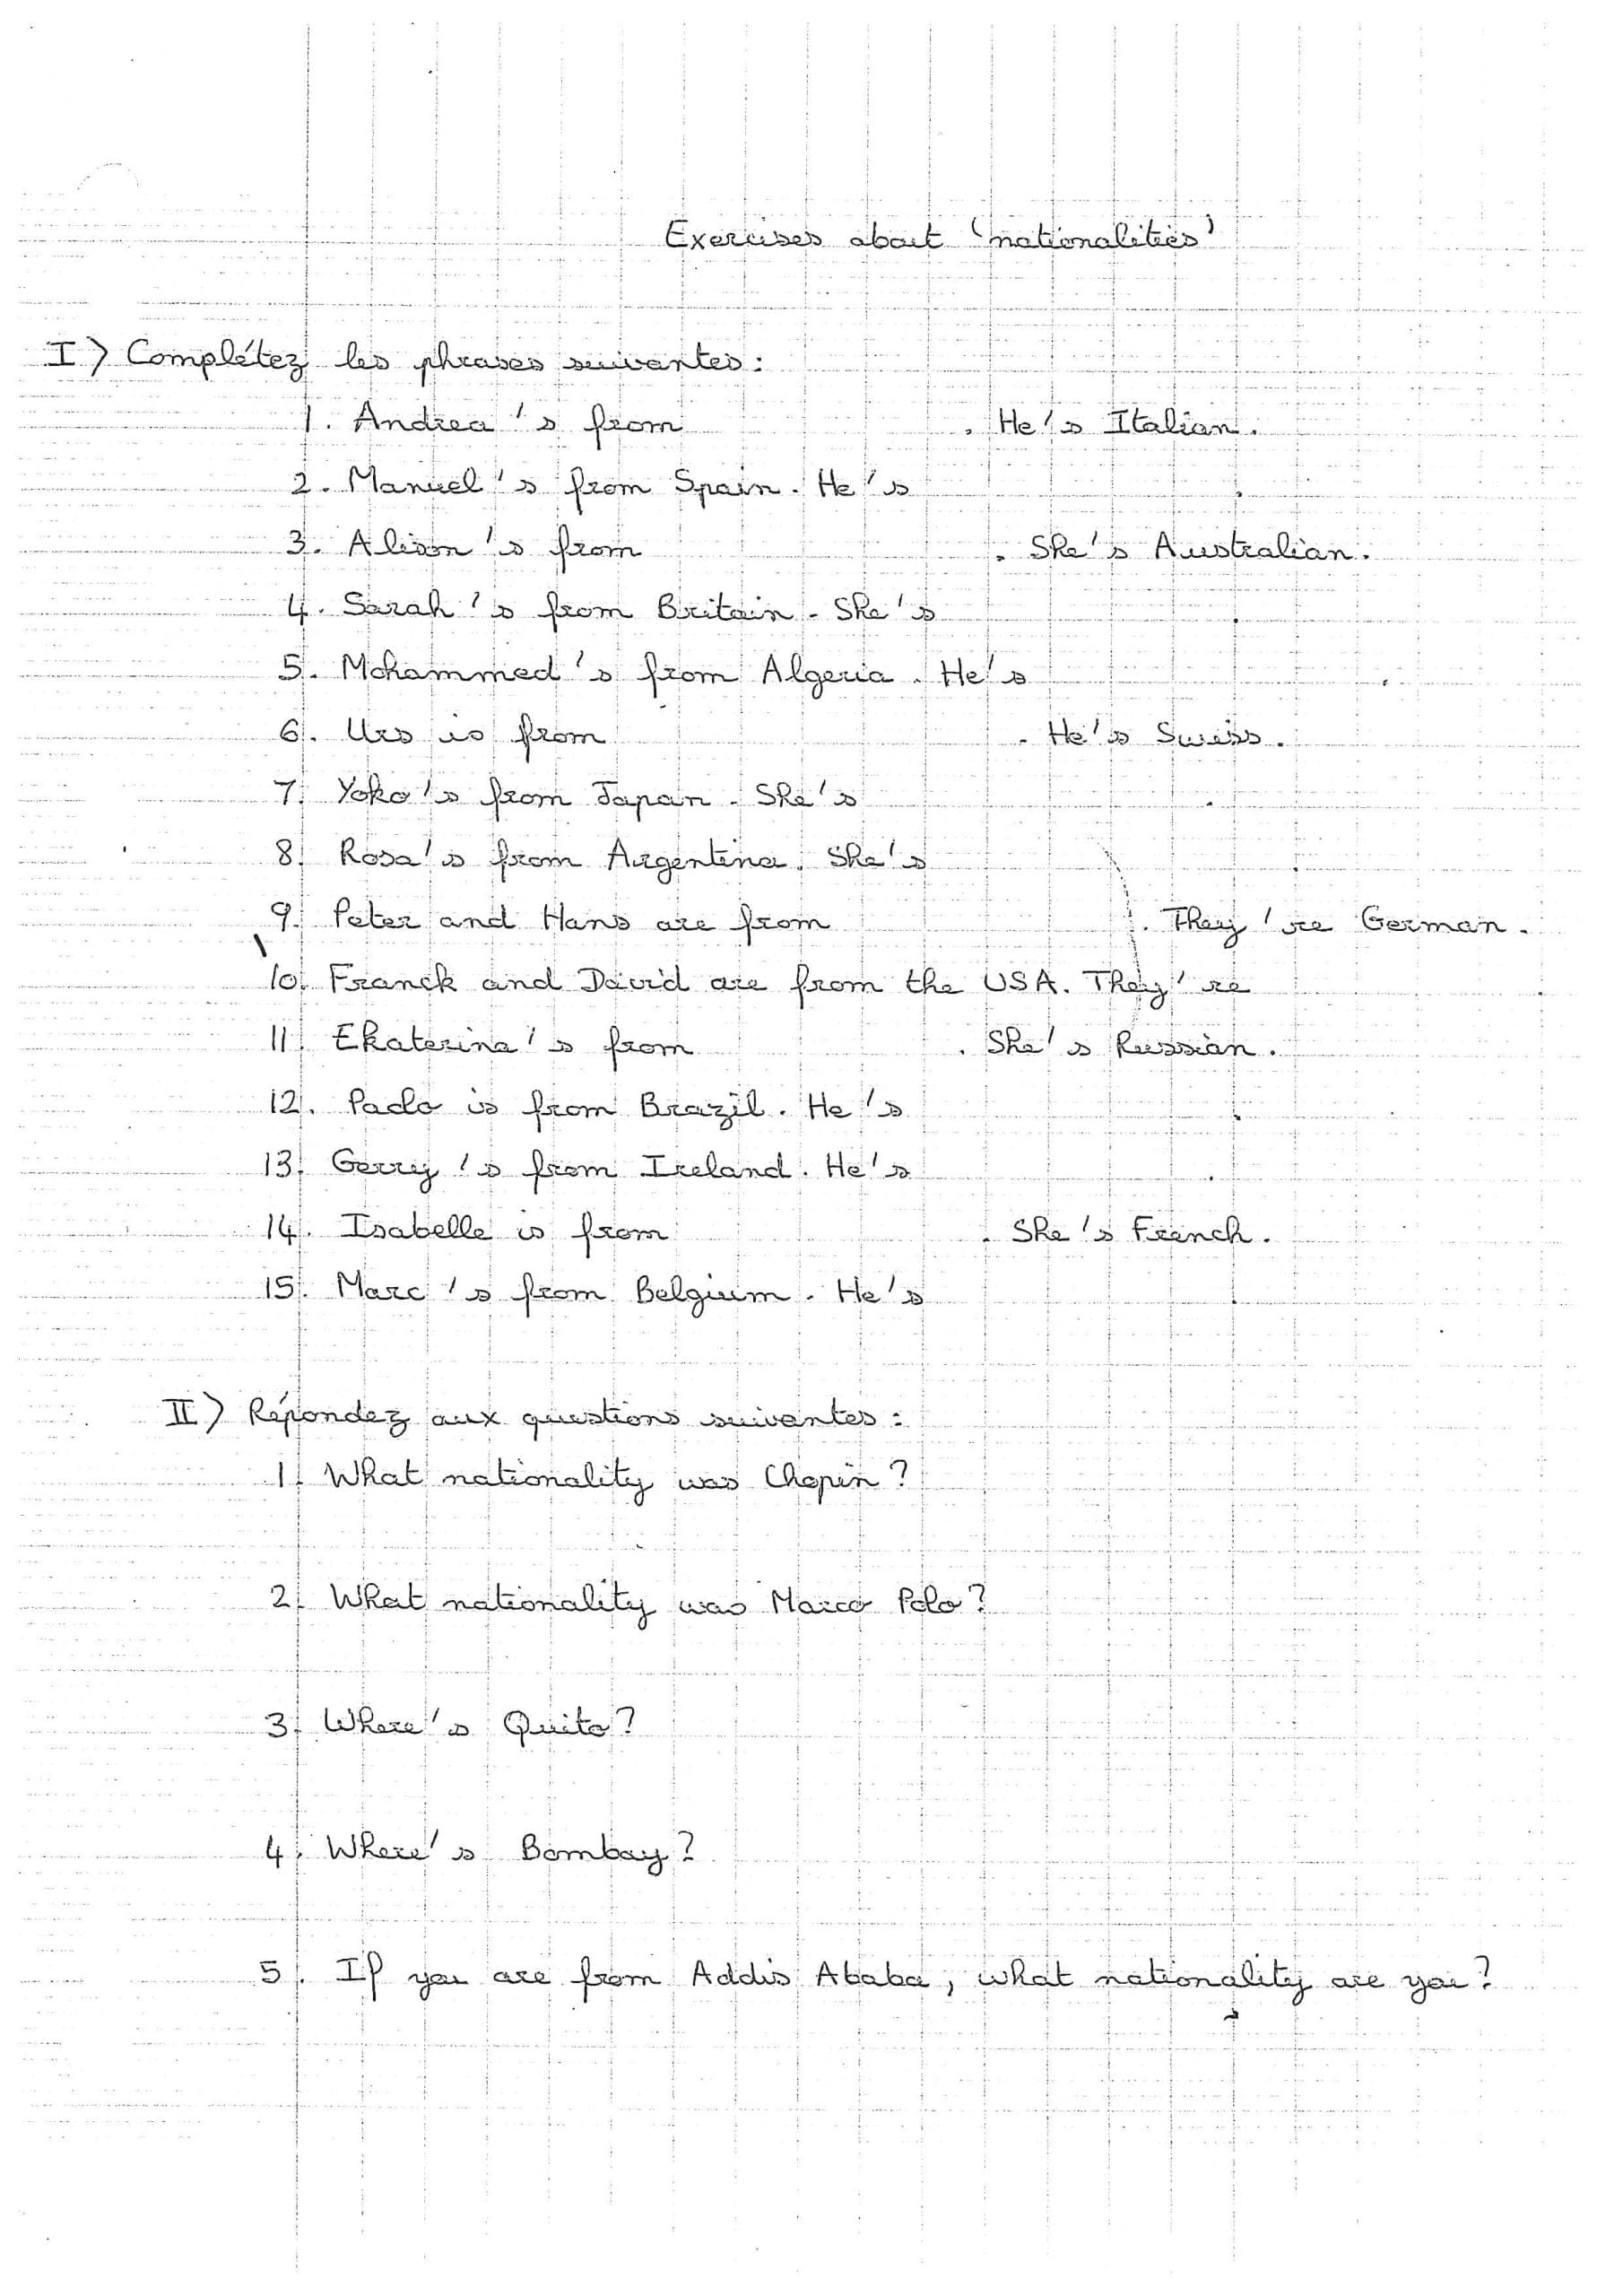 Exercises about 'nationalities'
I) Complétez les phrases suivantes:
1. Andrea's from . He's Italian.
2. Manuel's from Spain. He's .
3. Alison's from . She's Australian.
4. Sarah's from Britain. She's .
5. Mohammed's from Algeria. He's .
6. Urs is from . He's Swiss.
7. Yoko's from Japan. She's .
8. Rosa's from Argentina. She's .
9. Peter and Hans are from . They're German.
10. Franck and David are from the USA. They're .
11. Ekaterina's from . She's Russian.
12. Paolo is from Brazil. He's .
13. Gerry's from Ireland. He's .
14. Isabelle is from . She's French.
15. Marc's from Belgium. He's .
II) Répondez aux questions suivantes:
1. What nationality was Chopin?
2. What nationality was Marco Polo?
3. Where's Quito?
4. Where's Bombay?
5. If you are from Addis Ababa, what nationality are you?